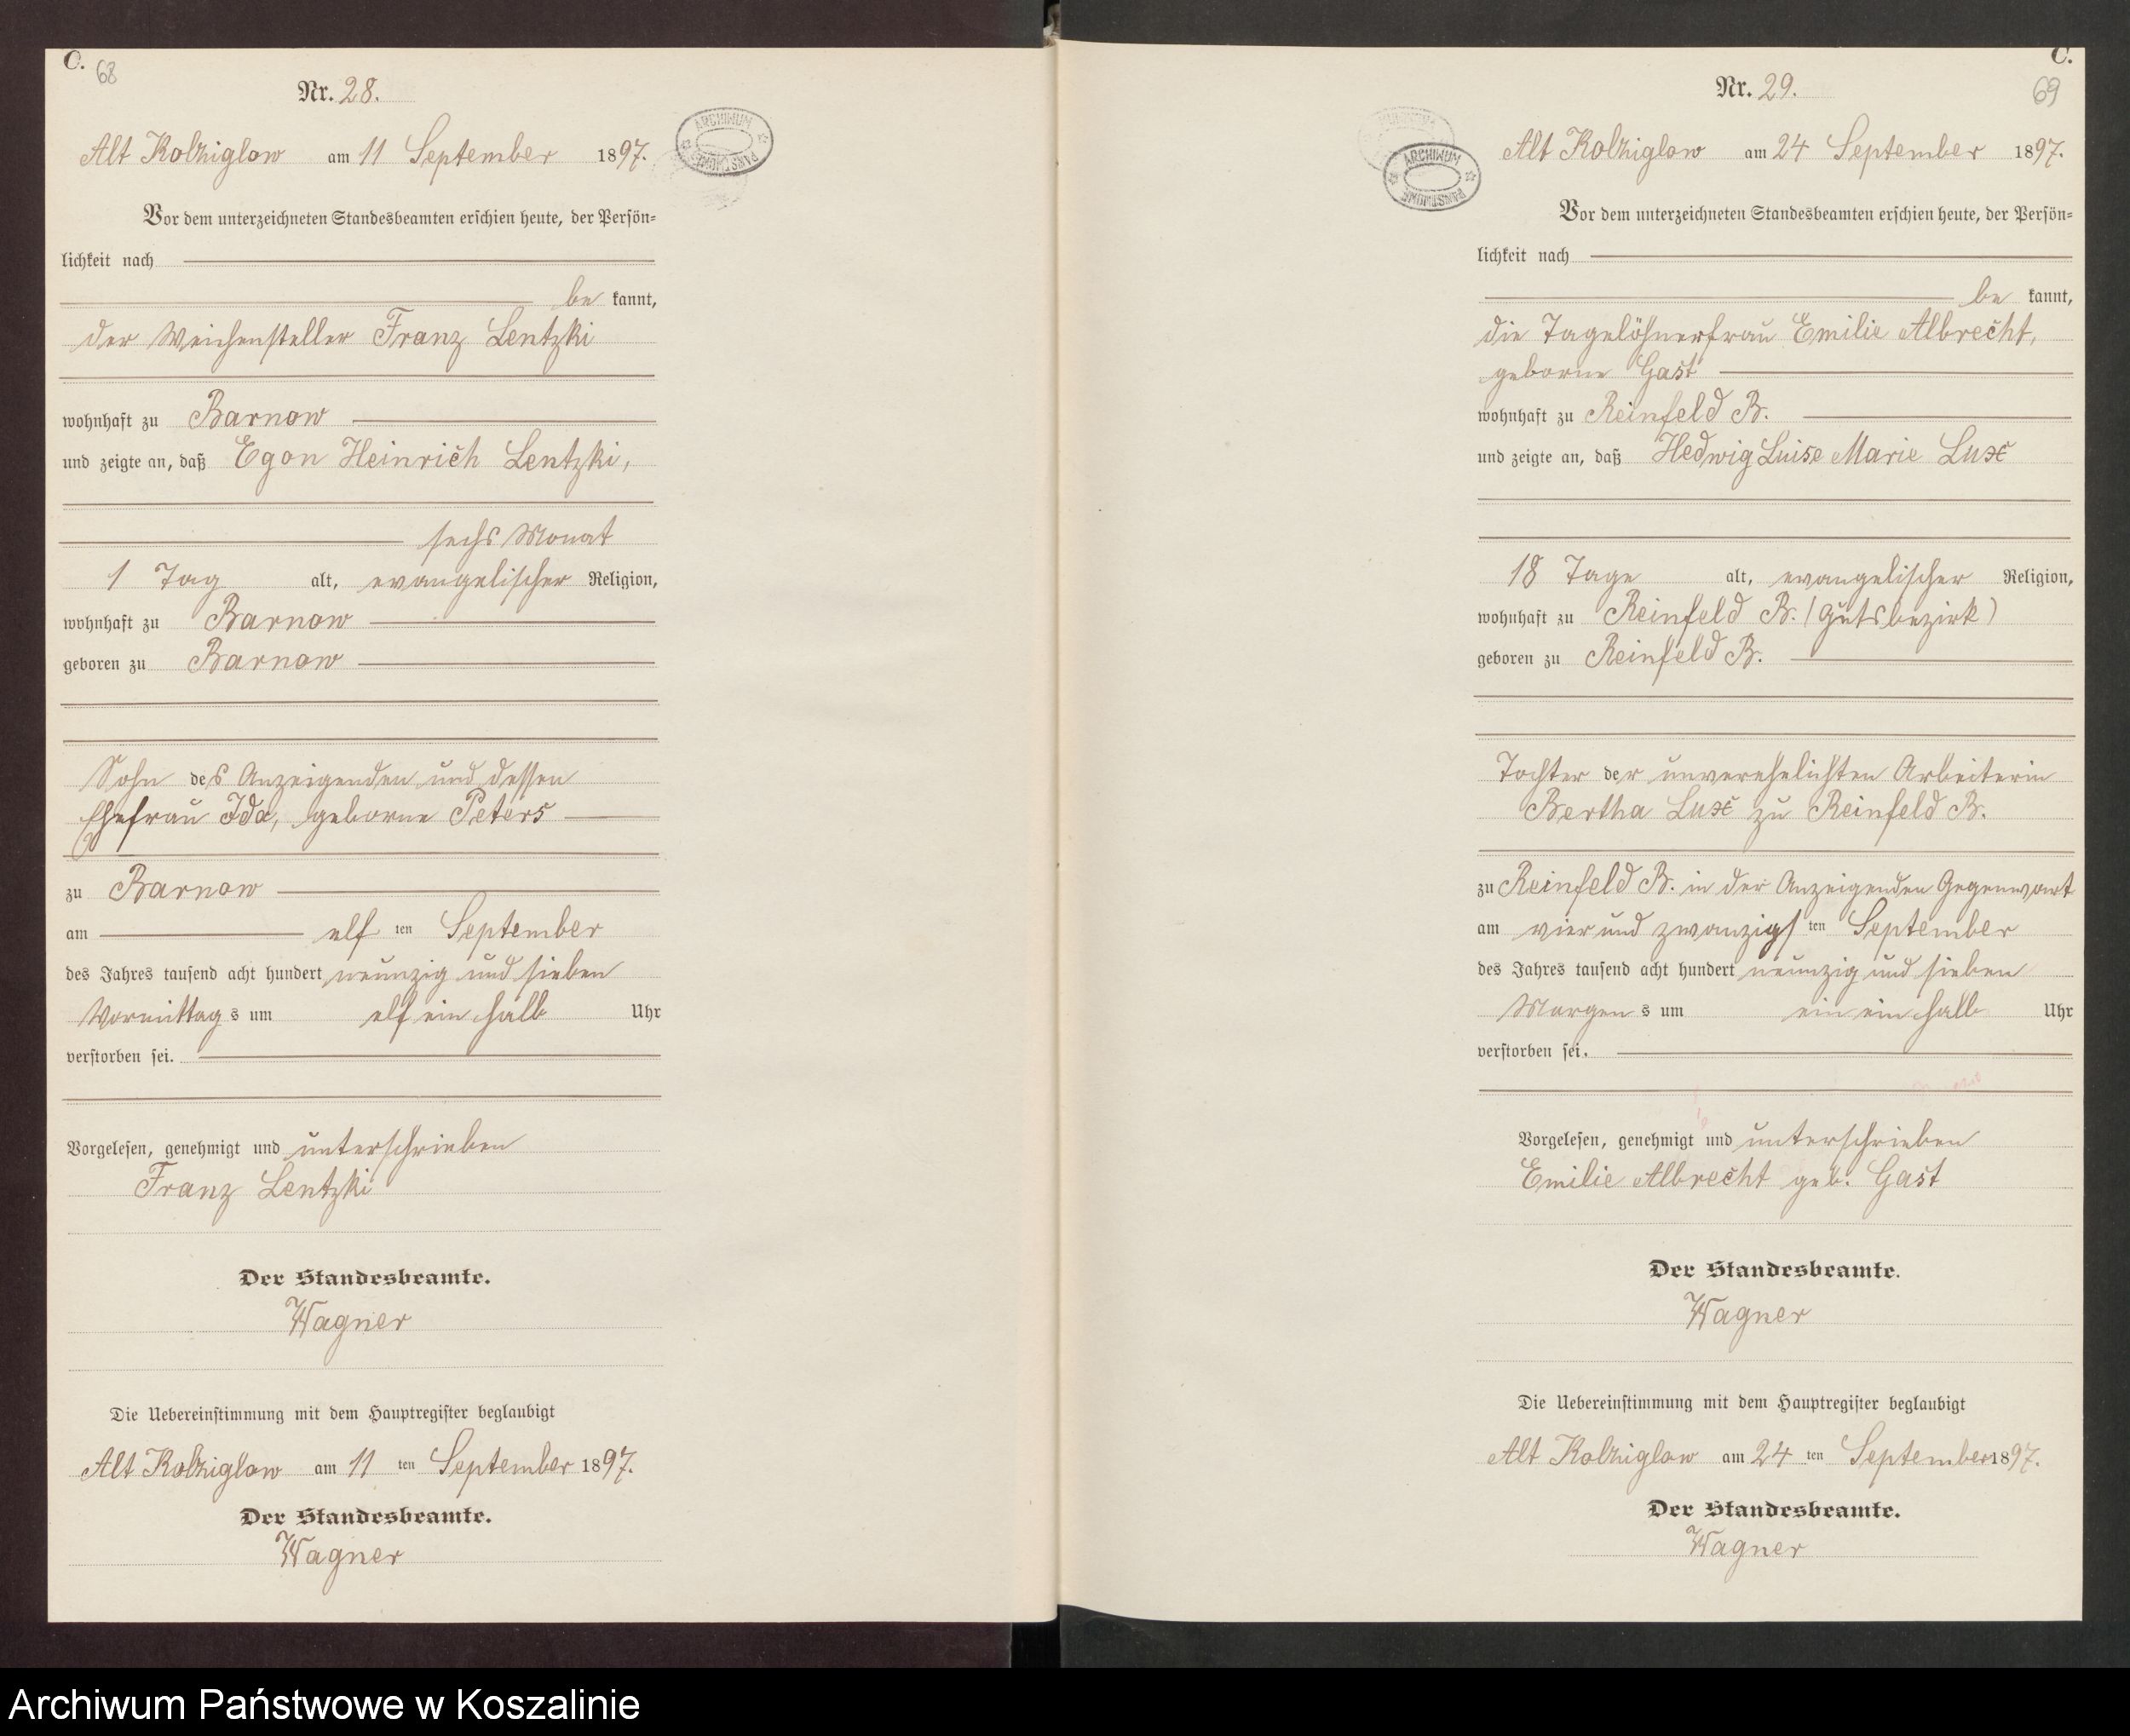 C.
68
Nr. 28.
Alt Kolziglow am 11 September 1897.
ARCHIWUM PAŃSTWOWE
Vor dem unterzeichneten Standesbeamten erschien heute, der Persön=
lichkeit nach
be kannt,
der Weichensteller Franz Lentzki
wohnhaft zu Barnow
und zeigte an, daß Egon Heinrich Lentzki,
sechs Monat
1 Tag alt, evangelischer Religion,
wohnhaft zu Barnow
geboren zu Barnow
Sohn des Anzeigenden und dessen
Ehefrau Ida, geborne Peters
zu Barnow
am elf ten September
des Jahres tausend acht hundert neunzig und sieben
Vormittag s um elf ein halb Uhr
verstorben sei.
Vorgelesen, genehmigt und unterschrieben
Franz Lentzki
Der Standesbeamte.
Wagner
Die Uebereinstimmung mit dem Hauptregister beglaubigt
Alt Kolziglow am 11 ten September 1897.
Der Standesbeamte.
Wagner
C.
69
Nr. 29.
Alt Kolziglow am 24 September 1897.
ARCHIWUM PAŃSTWOWE
Vor dem unterzeichneten Standesbeamten erschien heute, der Persön=
lichkeit nach
be kannt,
die Tagelöhnerfrau Emilie Albrecht,
geborne Gast
wohnhaft zu Reinfeld B.
und zeigte an, daß Hedwig Luise Marie Lux
18 Tage alt, evangelischer Religion,
wohnhaft zu Reinfeld B. (Gutsbezirk)
geboren zu Reinfeld B.
Tochter der unverehelichten Arbeiterin
Bertha Lux zu Reinfeld B.
zu Reinfeld B. in der Anzeigenden Gegenwart
am vier und zwanzigs ten September
des Jahres tausend acht hundert neunzig und sieben
Morgen s um ein ein halb Uhr
verstorben sei.
Vorgelesen, genehmigt und unterschrieben
Emilie Albrecht geb. Gast
Der Standesbeamte.
Wagner
Die Uebereinstimmung mit dem Hauptregister beglaubigt
Alt Kolziglow am 24 ten September 1897.
Der Standesbeamte.
Wagner
Archiwum Państwowe w Koszalinie